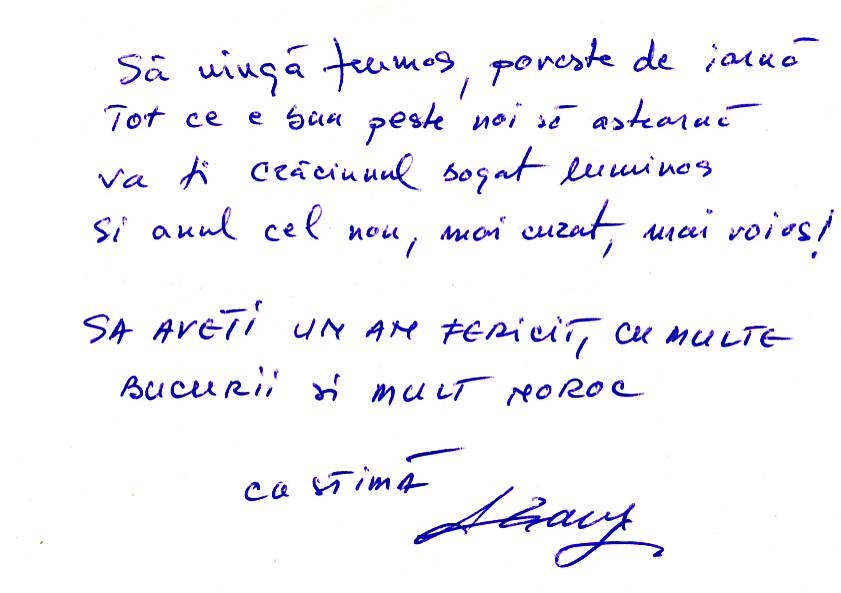 Să ningă frumos, poveste de iarnă
Tot ce e bun peste noi să aștearnă
va fi Crăciunul bogat luminos
Si anul cel nou, mai curat, mai voios!
SA AVETI UN AN FERICIT, CU MULTE
BUCURII si MULT NOROC
cu STIMĂ